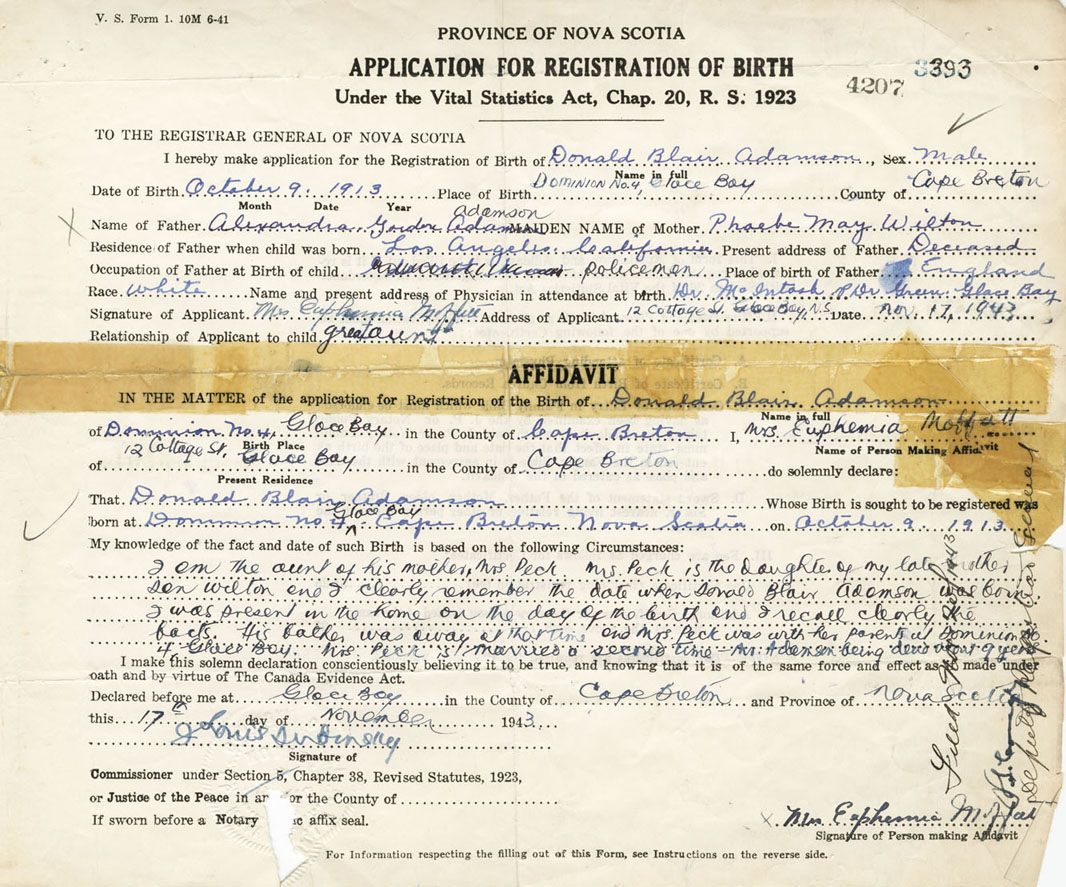 V. S. Form 1. 10M 6-41
PROVINCE OF NOVA SCOTIA
APPLICATION FOR REGISTRATION OF BIRTH
3393
4207
Under the Vital Statistics Act, Chap. 20, R. S. 1923
TO THE REGISTRAR GENERAL OF NOVA SCOTIA
I hereby make application for the Registration of Birth of Donald Blair Adamson, Sex Male
Name in full
Date of Birth October 9. 1913 Place of Birth Dominion No. 4, Glace Bay County of Cape Breton
Month Date Year
Adamson
Name of Father Alexandra Gordon MAIDEN NAME of Mother Phoebe May Wilton
Residence of Father when child was born Los Angeles California Present address of Father Deceased
Occupation of Father at Birth of child policemen Place of birth of Father England
Race White Name and present address of Physician in attendance at birth Dr. McIntosh Dr Green Glace Bay
Signature of Applicant Mrs Euphemia Moffett Address of Applicant 12 Cottage St. Glace Bay, N.S. Date Nov. 17, 1943
Relationship of Applicant to child great aunt
AFFIDAVIT
IN THE MATTER of the application for Registration of the Birth of Donald Blair Adamson
Name in full
of Dominion No. 4, Glace Bay in the County of Cape Breton I, Mrs Euphemia Moffatt
Birth Place
Name of Person Making Affidavit
of 12 Cottage St, Glace Bay in the County of Cape Breton do solemnly declare:
Present Residence
That Donald Blair Adamson Whose Birth is sought to be registered was
Glace Bay
born at Dominion No. 4 Cape Breton Nova Scotia on October 9 1913
My knowledge of the fact and date of such Birth is based on the following Circumstances:
I am the aunt of his mother, Mrs Peck. Mrs. Peck is the daughter of my late brother
Wilton and I clearly remember the date when Donald Blair Adamson was born.
I was present in the home on the day of the birth and I recall clearly the
facts. His father was away at that time and Mrs. Peck was with her parents at Dominion No.
4 Glace Bay. Mrs. Peck is married a second time - Mr. Adamson being dead about 9 years
I make this solemn declaration conscientiously believing it to be true, and knowing that it is of the same force and effect as if made under
oath and by virtue of The Canada Evidence Act.
Declared before me at Glace Bay in the County of Cape Breton and Province of Nova Scotia
this 17th day of November 1943
Signature of
Commissioner under Section 5, Chapter 38, Revised Statutes, 1923,
or Justice of the Peace in and for the County of
If sworn before a Notary affix seal.
Mrs Euphemia
Signature of Person making Affidavit
For Information respecting the filling out of this Form, see Instructions on the reverse side.
Filed 1943
Deputy Registrar General